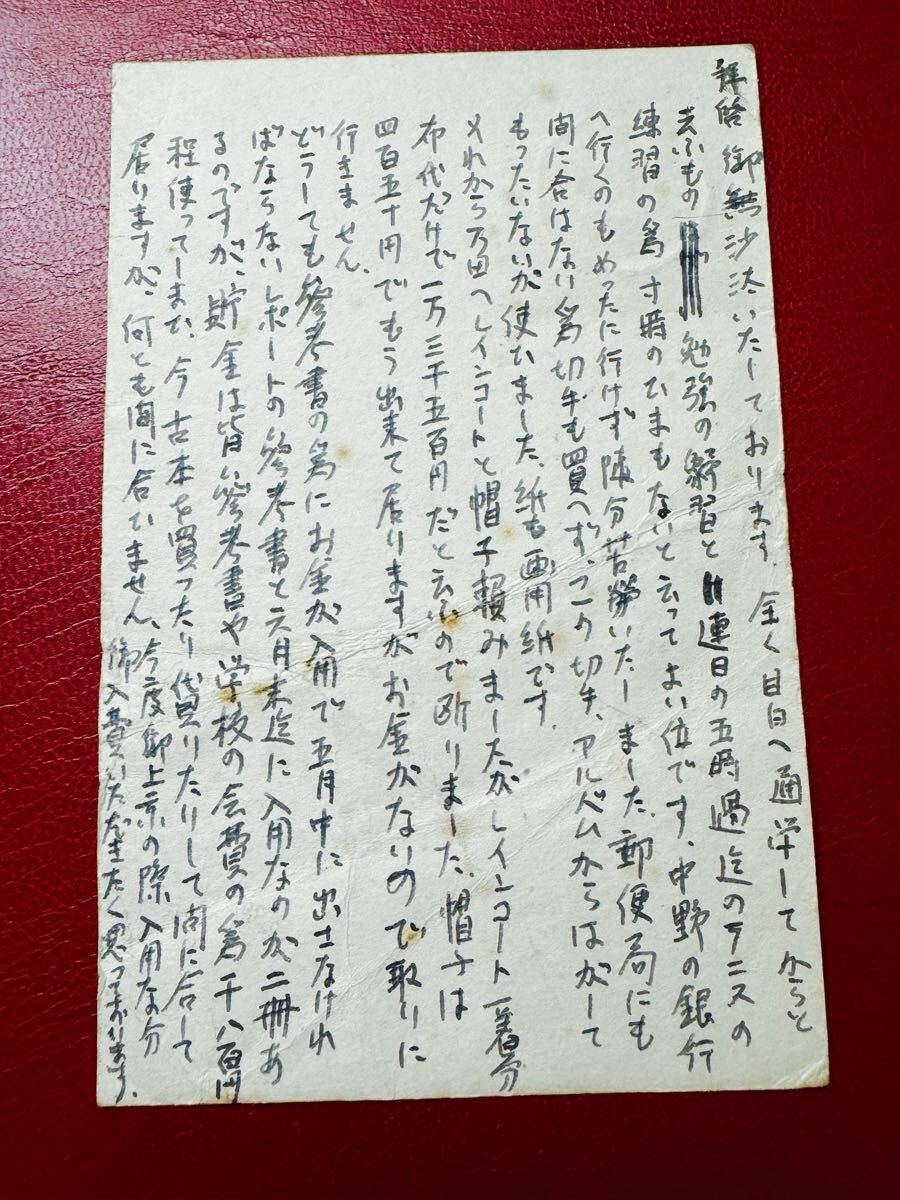 拝啓 御無沙汰いたしております、全く目白へ通学してからと
云ふもの 勉強の練習と連日の五時過迄のテニスの
練習の為寸時のひまもないと云ってよい位です、中野の銀行
へ行くのもめったに行けず随分苦労いたしました、郵便局にも
間に合はない為切手も買へず、この切手、アルバムからはがして
もったいないが使ひました、紙も画用紙です。
それから万田へレインコートと帽子頼みましたがレインコート一着分
布代だけで一万三千五百円だと云ふので断りました、帽子は
四百五十円でもう出来て居りますがお金がないので取りに
行きません。
どうしても参考書の為にお金が入用で五月中に出さなけれ
ばならないレポートの参考書と六月末迄に入用なのが二冊あ
るのですが、貯金は皆参考書や学校の会費の為千八百円
程使ってしまひ、今古本を買ったり借りたりして間に合して
居りますが、何とも間に合ひません、今度御上京の際入用な分
御入費いただきたく思っております。